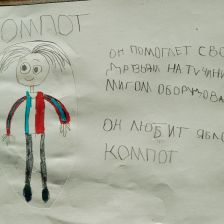 ОМПОТ
ОН ПОМОГАЕТ СВО
ДРУЗЬЯМ НА ТУЧИ
МИГОМ ОБОРУДОВА
ОН ЛЮБИТ ЯБЛО
КОМПОТ